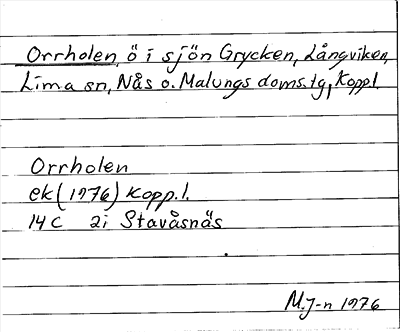 Orrholen, ö i sjön Grycken, Långviken,
Lima sn, Nås o. Malungs doms.tg, Koppl.
Orrholen
ek (1976) Kopp.l.
14 C 2i Stavåsnäs
M.J-n 1976